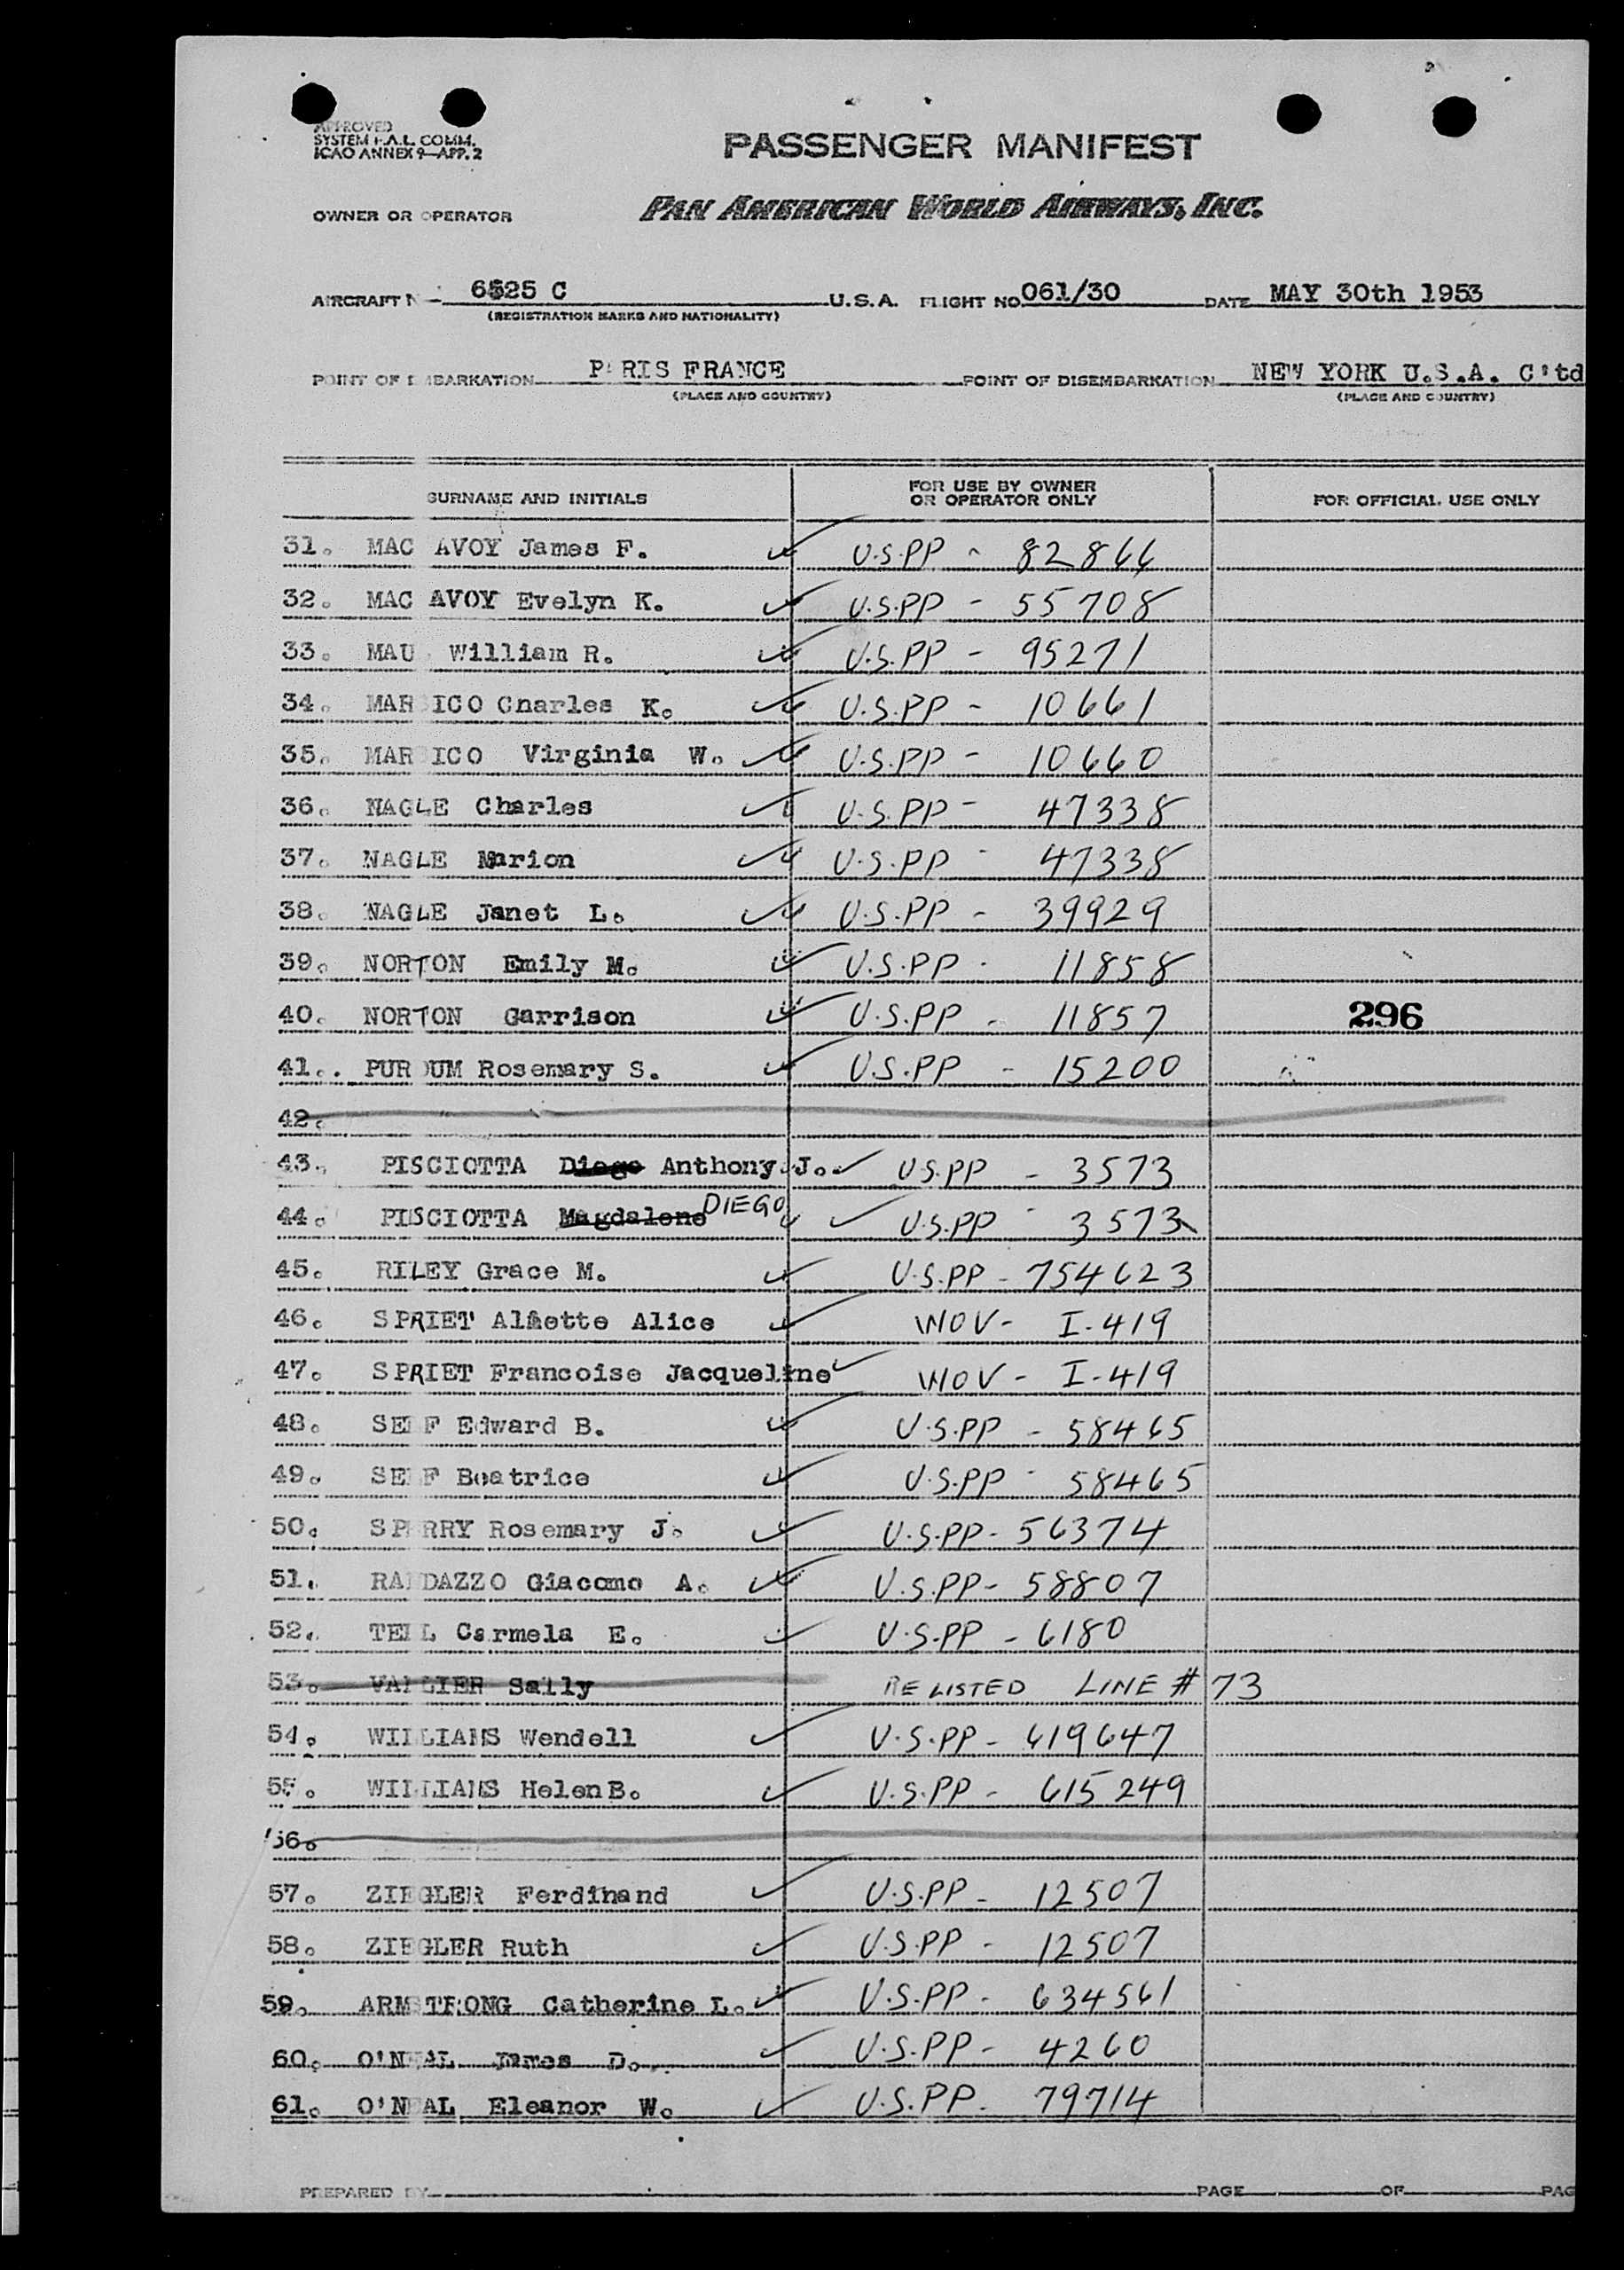 APPROVED
SYSTEM F.A.L. COMM.
ICAO ANNEX 9—APP. 2
PASSENGER MANIFEST
OWNER OR OPERATOR PAN AMERICAN WORLD AIRWAYS, INC.
AIRCRAFT 6525 C U.S.A. FLIGHT NO 061/30 DATE MAY 30th 1953
(REGISTRATION MARKS AND NATIONALITY)
POINT OF EMBARKATION PARIS FRANCE POINT OF DISEMBARKATION NEW YORK U.S.A. C'td
(PLACE AND COUNTRY) (PLACE AND COUNTRY)
SURNAME AND INITIALS FOR USE BY OWNER OR OPERATOR ONLY FOR OFFICIAL USE ONLY
31. MAC AVOY James F. U.S.PP - 82866
32. MAC AVOY Evelyn K. U.S.PP - 55708
33. MAU William R. U.S.PP - 95271
34. MARSICO Charles K. U.S.PP - 10661
35. MARSICO Virginia W. U.S.PP - 10660
36. NAGLE Charles U.S.PP - 47338
37. NAGLE Marion U.S.PP - 47338
38. NAGLE Janet L. U.S.PP - 39929
39. NORTON Emily M. U.S.PP - 11858
40. NORTON Garrison U.S.PP - 11857 296
41.. PURDUM Rosemary S. U.S.PP - 15200
42.
43. PISCIOTTA Diego Anthony J. U.S.PP - 3573
44. PISCIOTTA Magdalene DIEGO U.S.PP - 3573
45. RILEY Grace M. U.S.PP - 754623
46. SPRIET Aliette Alice WOV - I-419
47. SPRIET Francoise Jacqueline WOV - I-419
48. SELF Edward B. U.S.PP - 58465
49. SELF Beatrice U.S.PP - 58465
50. SPERRY Rosemary J. U.S.PP - 56374
51. RANDAZZO Giacomo A. U.S.PP - 58807
52. TELL Carmela E. U.S.PP - 6180
53. VALLIER Sally RELISTED LINE # 73
54. WILLIAMS Wendell U.S.PP - 619647
55. WILLIAMS Helen B. U.S.PP - 615249
56.
57. ZIEGLER Ferdinand U.S.PP - 12507
58. ZIEGLER Ruth U.S.PP - 12507
59. ARMSTRONG Catherine L. U.S.PP - 634561
60. O'NEAL James D. U.S.PP - 4260
61. O'NEAL Eleanor W. U.S.PP - 79714
PREPARED BY PAGE OF PAG